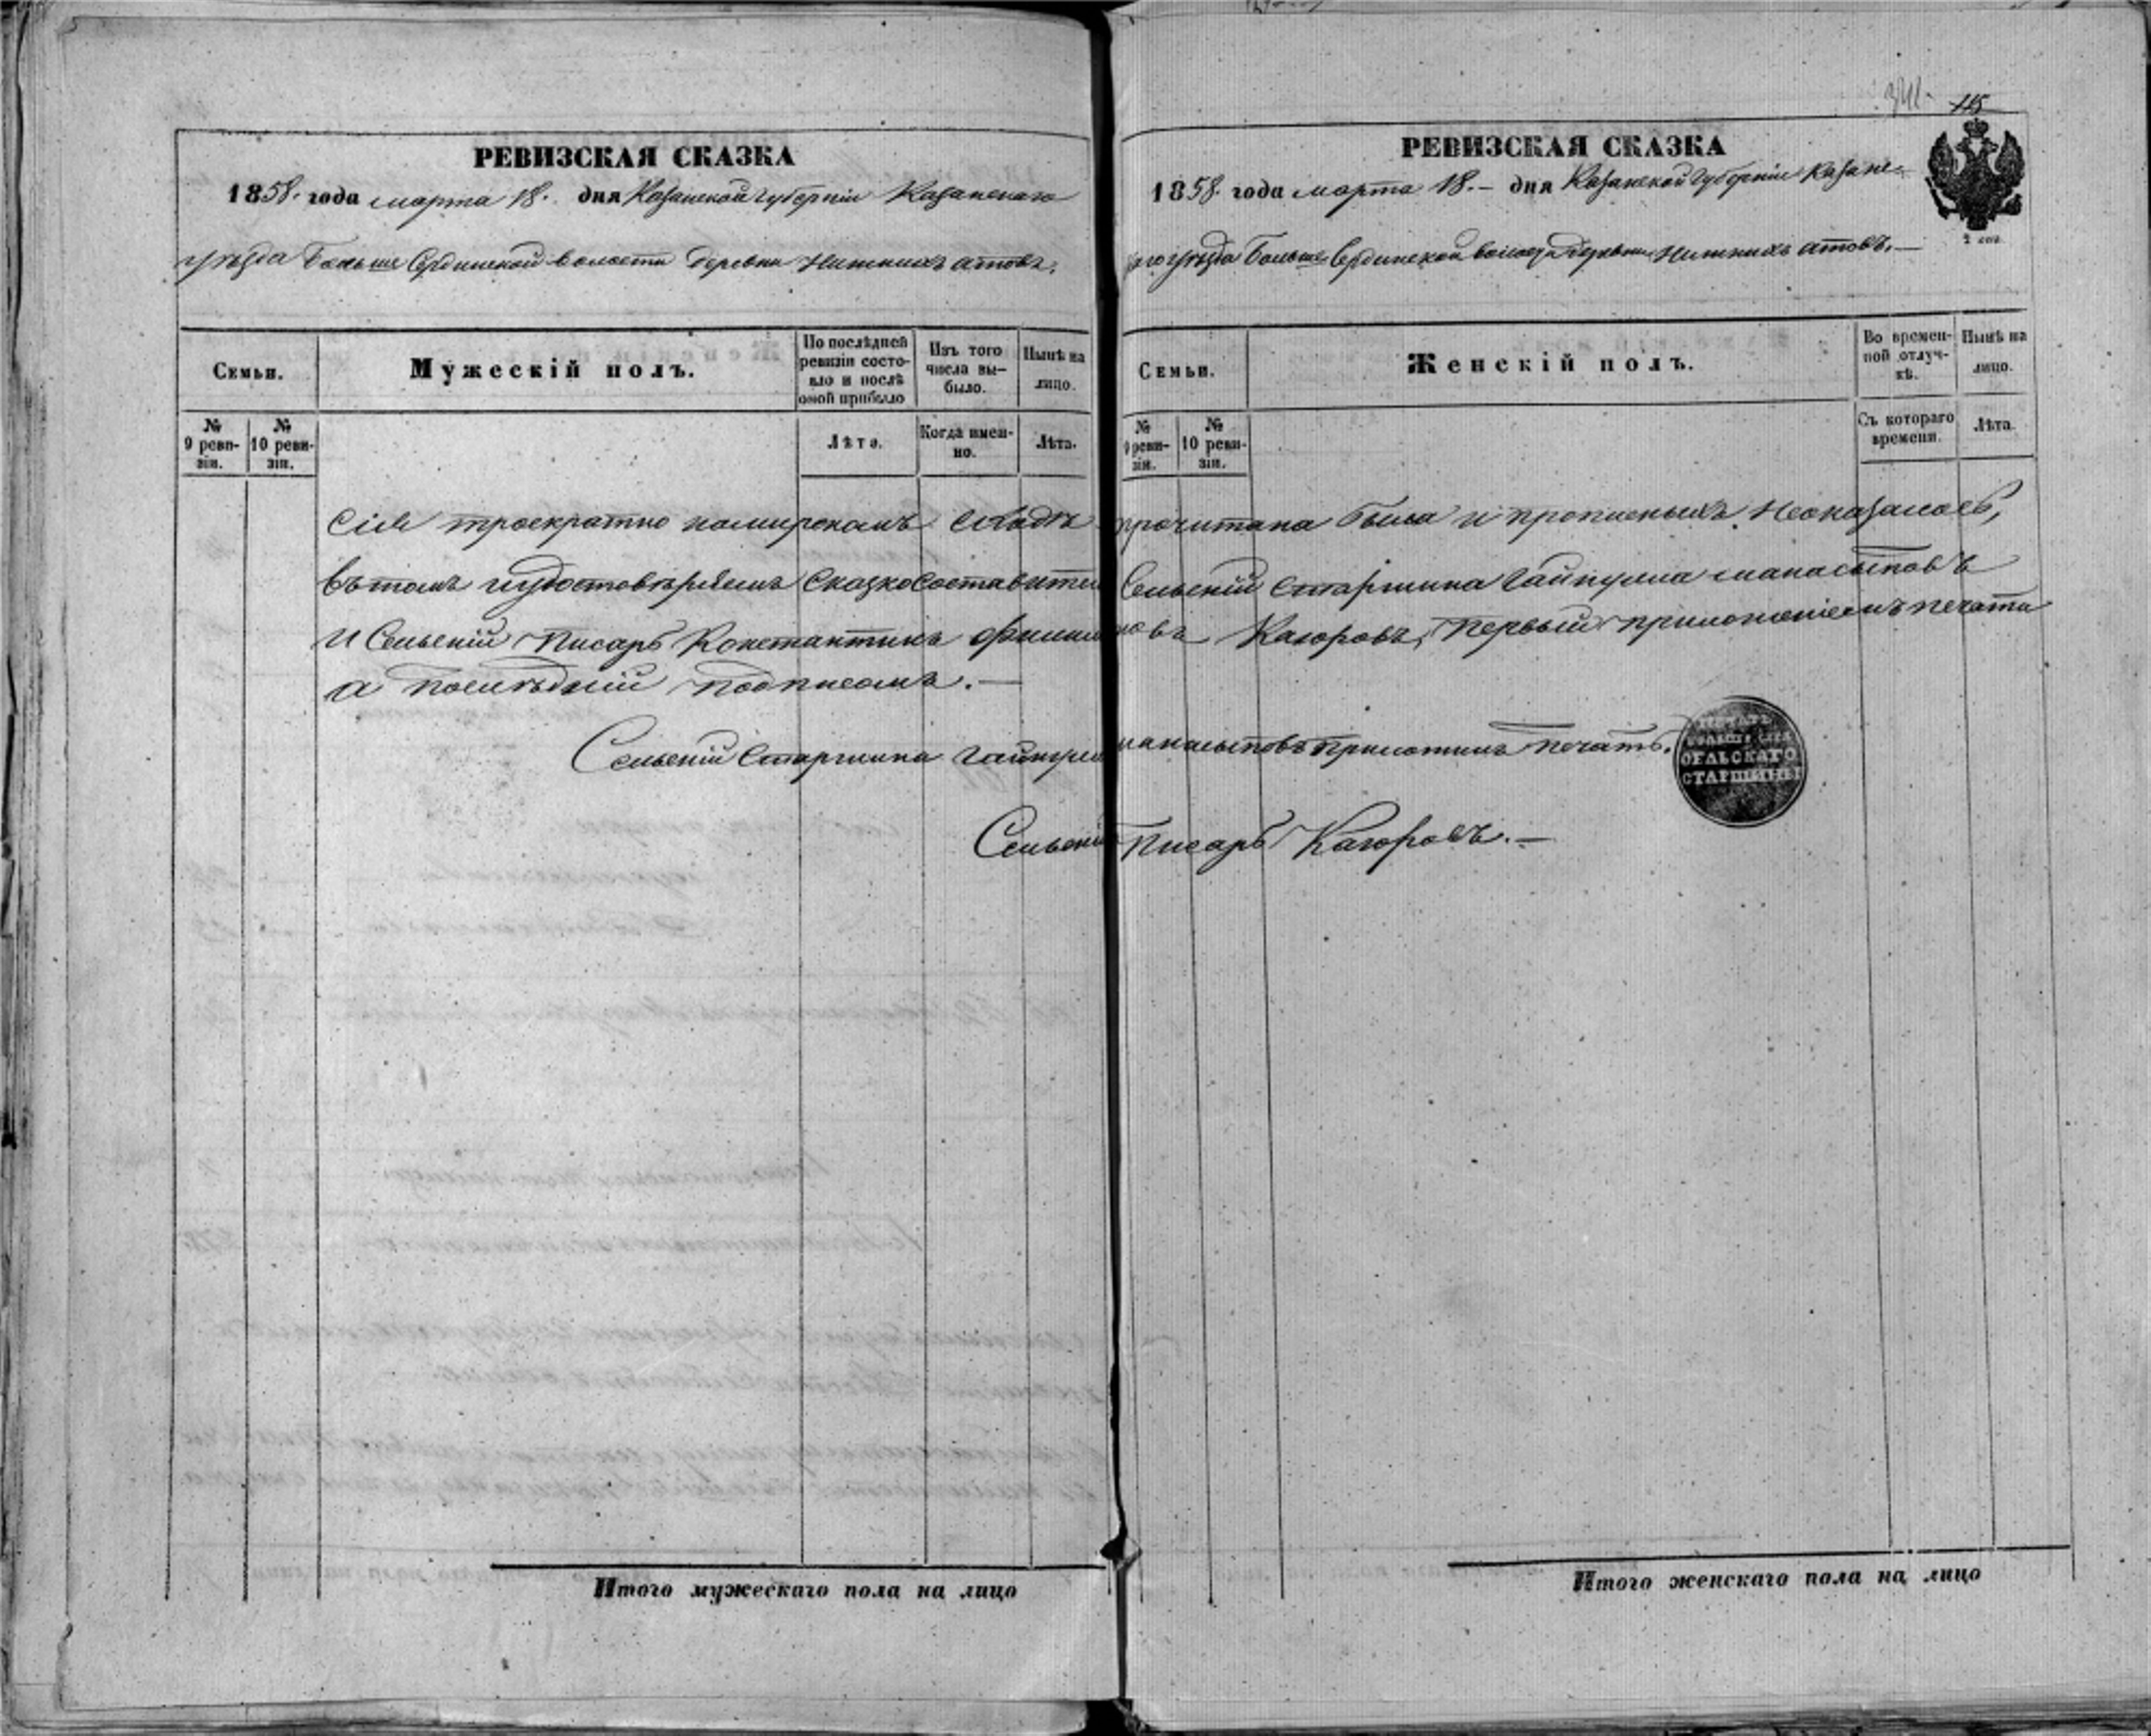 РЕВИЗСКАЯ СКАЗКА
1858. года марта 18. дня Казанской губерніи Казанскаго
уѣзда Больше Сердинской волости деревни Нижнихъ атовъ.
Семьи.
Мужескій полъ.
По послѣдней ревизіи состояло и послѣ оной прибыло
Изъ того числа выбыло.
Нынѣ на лицо.
№ 9 ревизіи.
№ 10 ревизіи.
Лѣта.
Когда именно.
Лѣта.
341.
115
РЕВИЗСКАЯ СКАЗКА
1858. года марта 18.— дня Казанской губерніи Казанс-
каго уѣзда Больше Сердинской волости деревни Нижнихъ атовъ.—
2 коп.
Семьи.
Женскій полъ.
Во временной отлучкѣ.
Нынѣ на лицо.
№ 9 ревизіи.
№ 10 ревизіи.
Съ котораго времени.
Лѣта.
Сія троекратно на мирскомъ сходѣ прочитана была и прописныхъ неоказалось,
въ томъ и удостовѣряемъ Сказкосоставители Сельскій Старшина
и Сельскій Писарь Константинъ первый приложеніемъ печати
а послѣдній подписомъ.—
Сельскій Старшина приложилъ печать.
ПЕЧАТЬ
СЕЛЬСКАГО
СТАРШИНЫ
Сельскій Писарь
Итого мужескаго пола на лицо
Итого женскаго пола на лицо